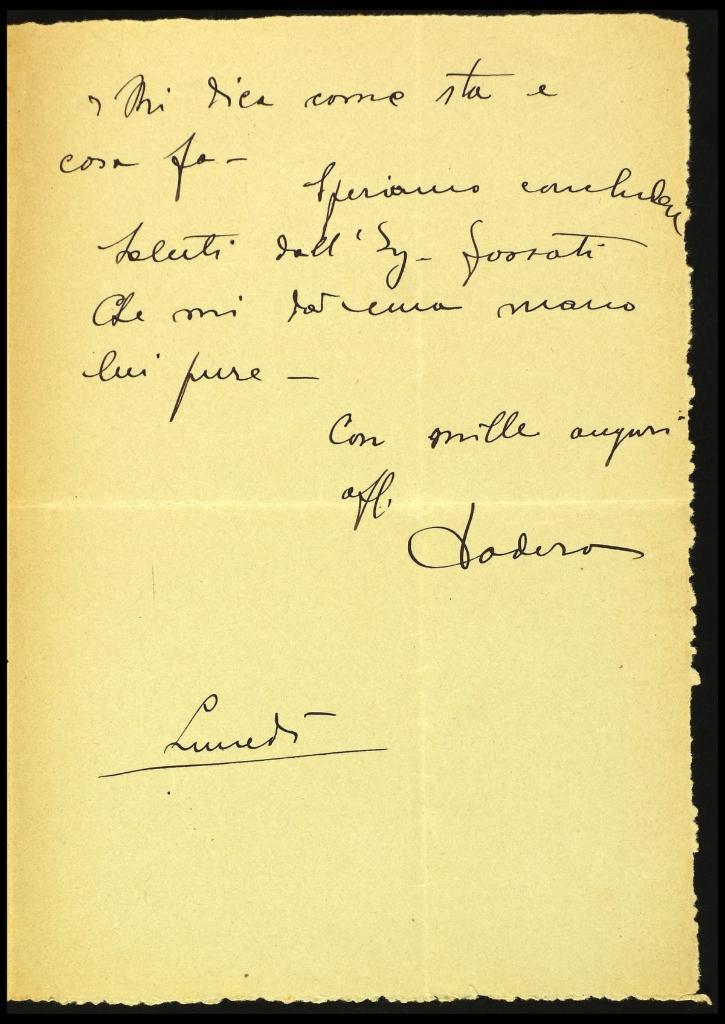 Mi dica come sta e
cosa fa –
Speriamo concludere
Saluti dall'Ing. Fossati
Che mi dà una mano
lui pure –
Con mille auguri
aff.
Dodero
Lunedì